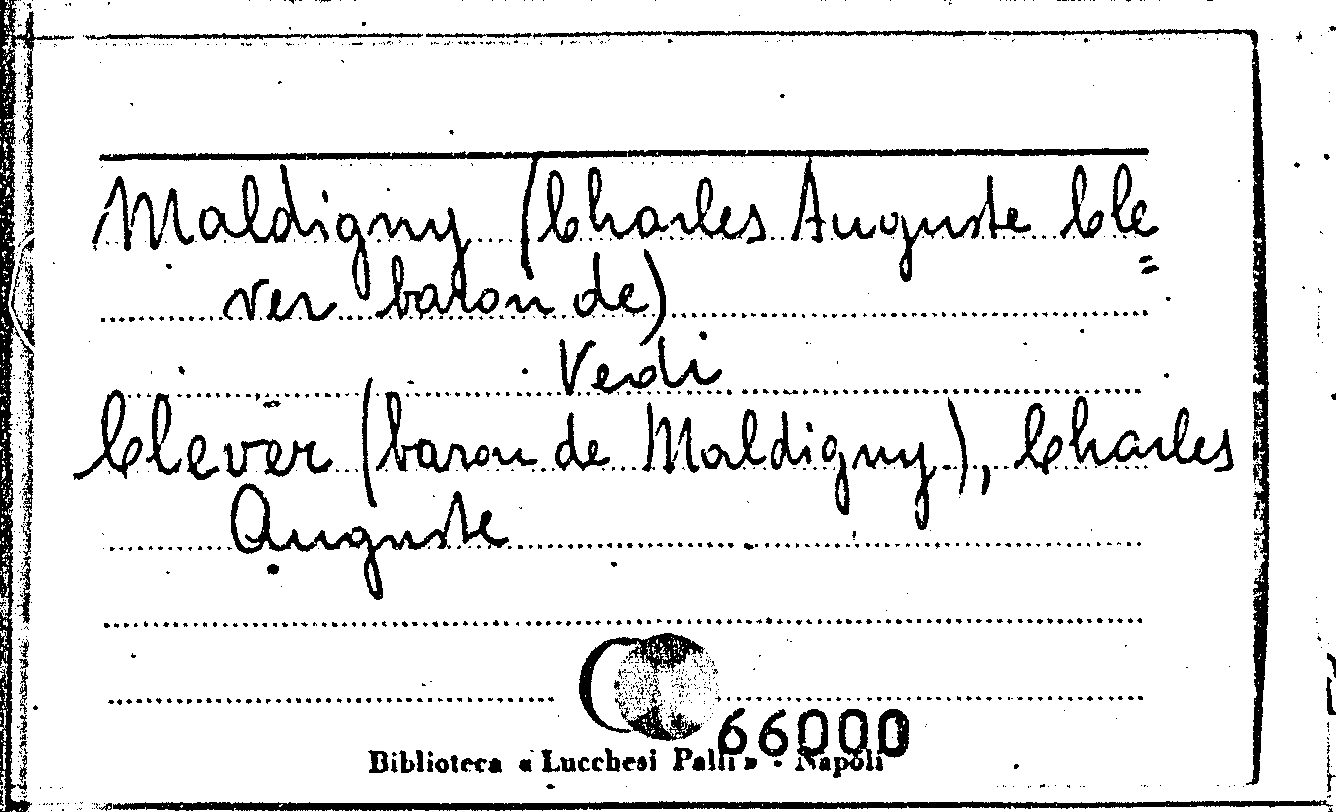 Maldigny (Charles Auguste Cle=
ver baron de)
Vedi
Clever (baron de Maldigny), Charles
Auguste
66000
Biblioteca « Lucchesi Palli » - Napoli